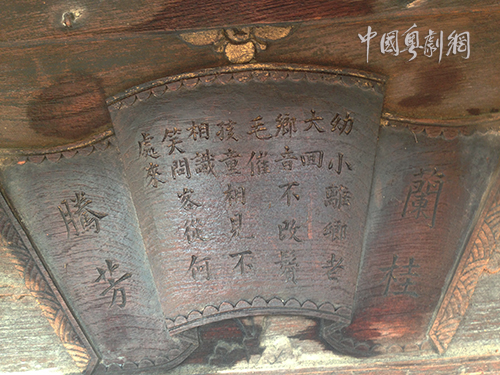 中國粵劇網
蘭桂
幼小離鄉老
大回
鄉音不改鬢
毛催
孩童相見不
相識
笑問客從何
處來
騰芳